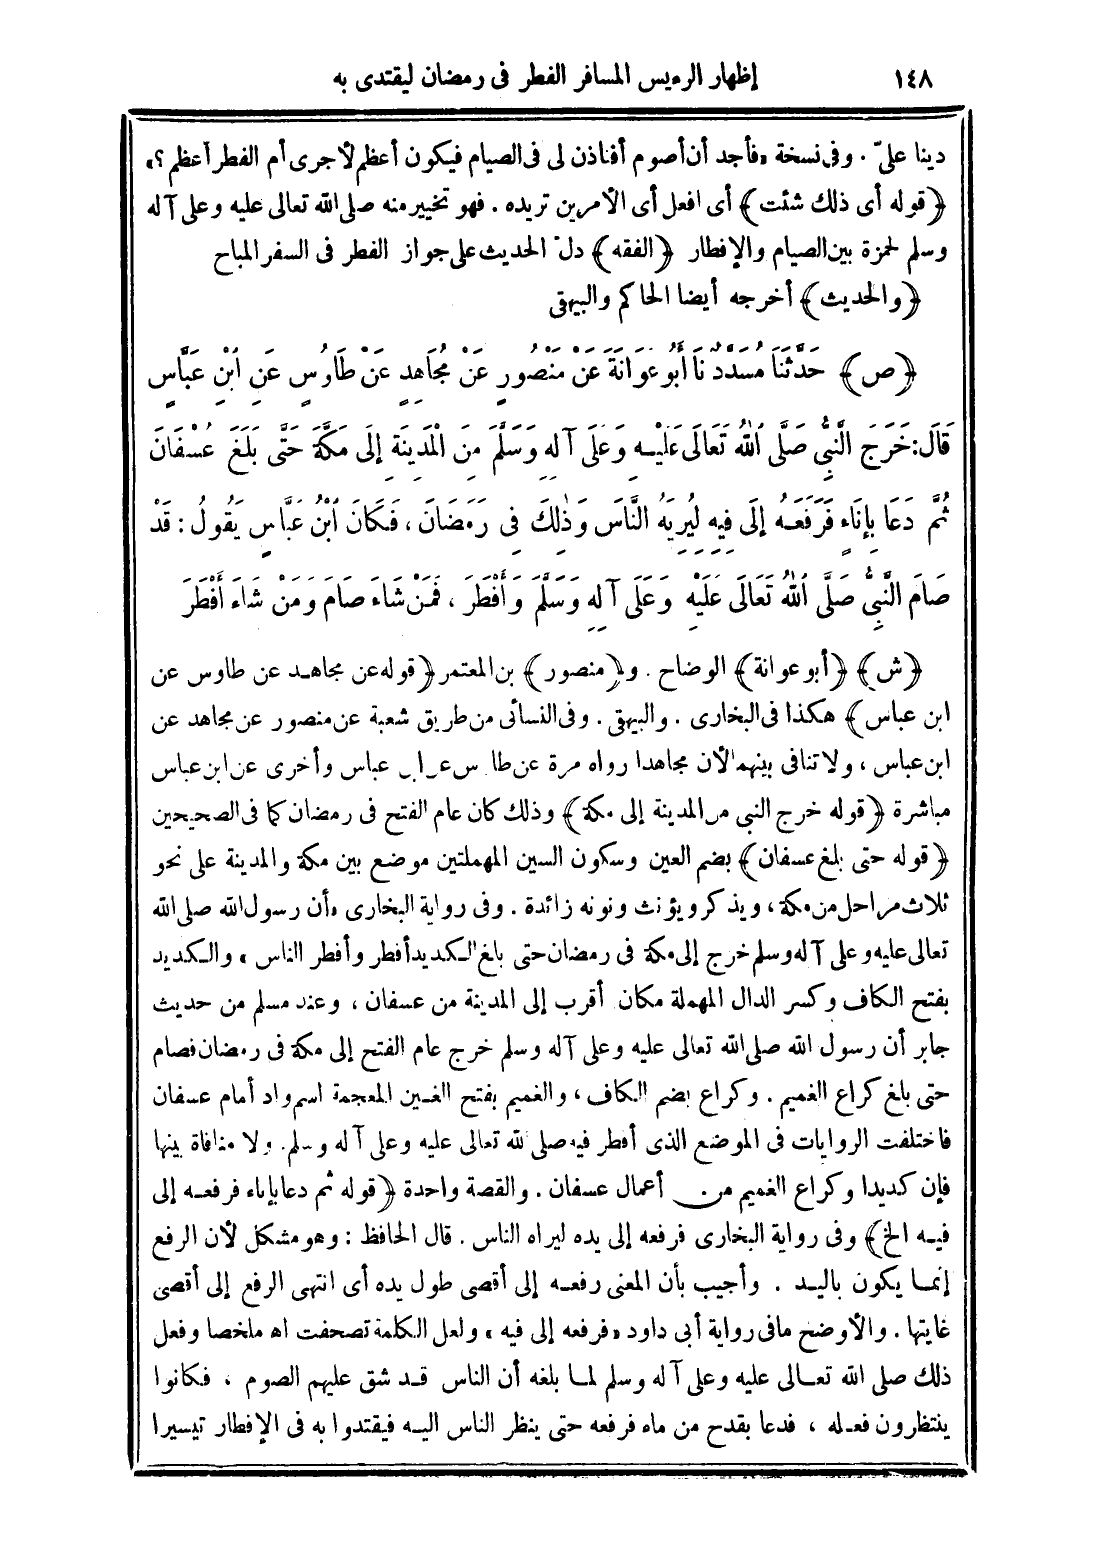 ١٤٨ إظهار الرءيس المسافر الفطر فى رمضان ليقتدى به
دينا علىّ . وفى نسخة «فأجد أن أصوم أفتاذن لى فى الصيام فيكون أعظم لأجرى أم الفطر أعظم ؟»
﴿قوله أى ذلك شئت﴾ أى افعل أى الأمرين تريده . فهو تخيير منه صلى الله تعالى عليه وعلى آله
وسلم لحمزة بين الصيام والإفطار ﴿الفقه﴾ دلّ الحديث على جواز الفطر فى السفر المباح
﴿والحديث﴾ أخرجه أيضا الحاكم والبيهقى
﴿ص﴾ حَدَّثَنَا مُسَدَّدٌ نَا أَبُو عَوَانَةَ عَنْ مَنْصُورٍ عَنْ مُجَاهِدٍ عَنْ طَاوُسٍ عَنِ ابْنِ عَبَّاسٍ
قَالَ: خَرَجَ النَّبِىُّ صَلَّى اللهُ تَعَالَى عَلَيْهِ وَعَلَى آلِهِ وَسَلَّمَ مِنَ الْمَدِينَةِ إِلَى مَكَّةَ حَتَّى بَلَغَ عُسْفَانَ
ثُمَّ دَعَا بِإِنَاءٍ فَرَفَعَهُ إِلَى فِيهِ لِيُرِيَهُ النَّاسَ وَذٰلِكَ فِى رَمَضَانَ ، فَكَانَ ابْنُ عَبَّاسٍ يَقُولُ : قَدْ
صَامَ النَّبِىُّ صَلَّى اللهُ تَعَالَى عَلَيْهِ وَعَلَى آلِهِ وَسَلَّمَ وَأَفْطَرَ ، فَمَنْ شَاءَ صَامَ وَمَنْ شَاءَ أَفْطَرَ
﴿ش﴾ ﴿أبو عوانة﴾ الوضاح . و﴿منصور﴾ بن المعتمر ﴿قوله عن مجاهد عن طاوس عن
ابن عباس﴾ هكذا فى البخارى . والبيهقى . وفى النسائى من طريق شعبة عن منصور عن مجاهد عن
ابن عباس ، ولا تنافى بينهما لأن مجاهدا رواه مرة عن طاوس عن ابن عباس وأخرى عن ابن عباس
مباشرة ﴿قوله خرج النبى من المدينة إلى مكة﴾ وذلك كان عام الفتح فى رمضان كما فى الصحيحين
﴿قوله حتى بلغ عسفان﴾ بضم العين وسكون السين المهملتين موضع بين مكة والمدينة على نحو
ثلاث مراحل من مكة ، ويذكر ويؤنث ونونه زائدة . وفى رواية البخارى «أن رسول الله صلى الله
تعالى عليه وعلى آله وسلم خرج إلى مكة فى رمضان حتى بلغ الكديد أفطر وأفطر الناس» والكديد
بفتح الكاف وكسر الدال المهملة مكان أقرب إلى المدينة من عسفان ، وعند مسلم من حديث
جابر أن رسول الله صلى الله تعالى عليه وعلى آله وسلم خرج عام الفتح إلى مكة فى رمضان فصام
حتى بلغ كراع الغميم . وكراع بضم الكاف ، والغميم بفتح الغين المعجمة اسم واد أمام عسفان
فاختلفت الروايات فى الموضع الذى أفطر فيه صلى الله تعالى عليه وعلى آله وسلم. ولا منافاة بينها
فإن كديدا وكراع الغميم من أعمال عسفان . والقصة واحدة ﴿قوله ثم دعا بإناء فرفعه إلى
فيه الخ﴾ وفى رواية البخارى فرفعه إلى يده ليراه الناس . قال الحافظ : وهو مشكل لأن الرفع
إنما يكون باليد . وأجيب بأن المعنى رفعه إلى أقصى طول يده أى انتهى الرفع إلى أقصى
غايتها . والأوضح مافى رواية أبى داود «فرفعه إلى فيه» ولعل الكلمة تصحفت اه ملخصا وفعل
ذلك صلى الله تعالى عليه وعلى آله وسلم لما بلغه أن الناس قد شق عليهم الصوم ، فكانوا
ينتظرون فعله ، فدعا بقدح من ماء فرفعه حتى ينظر الناس اليه فيقتدوا به فى الإفطار تيسيرا